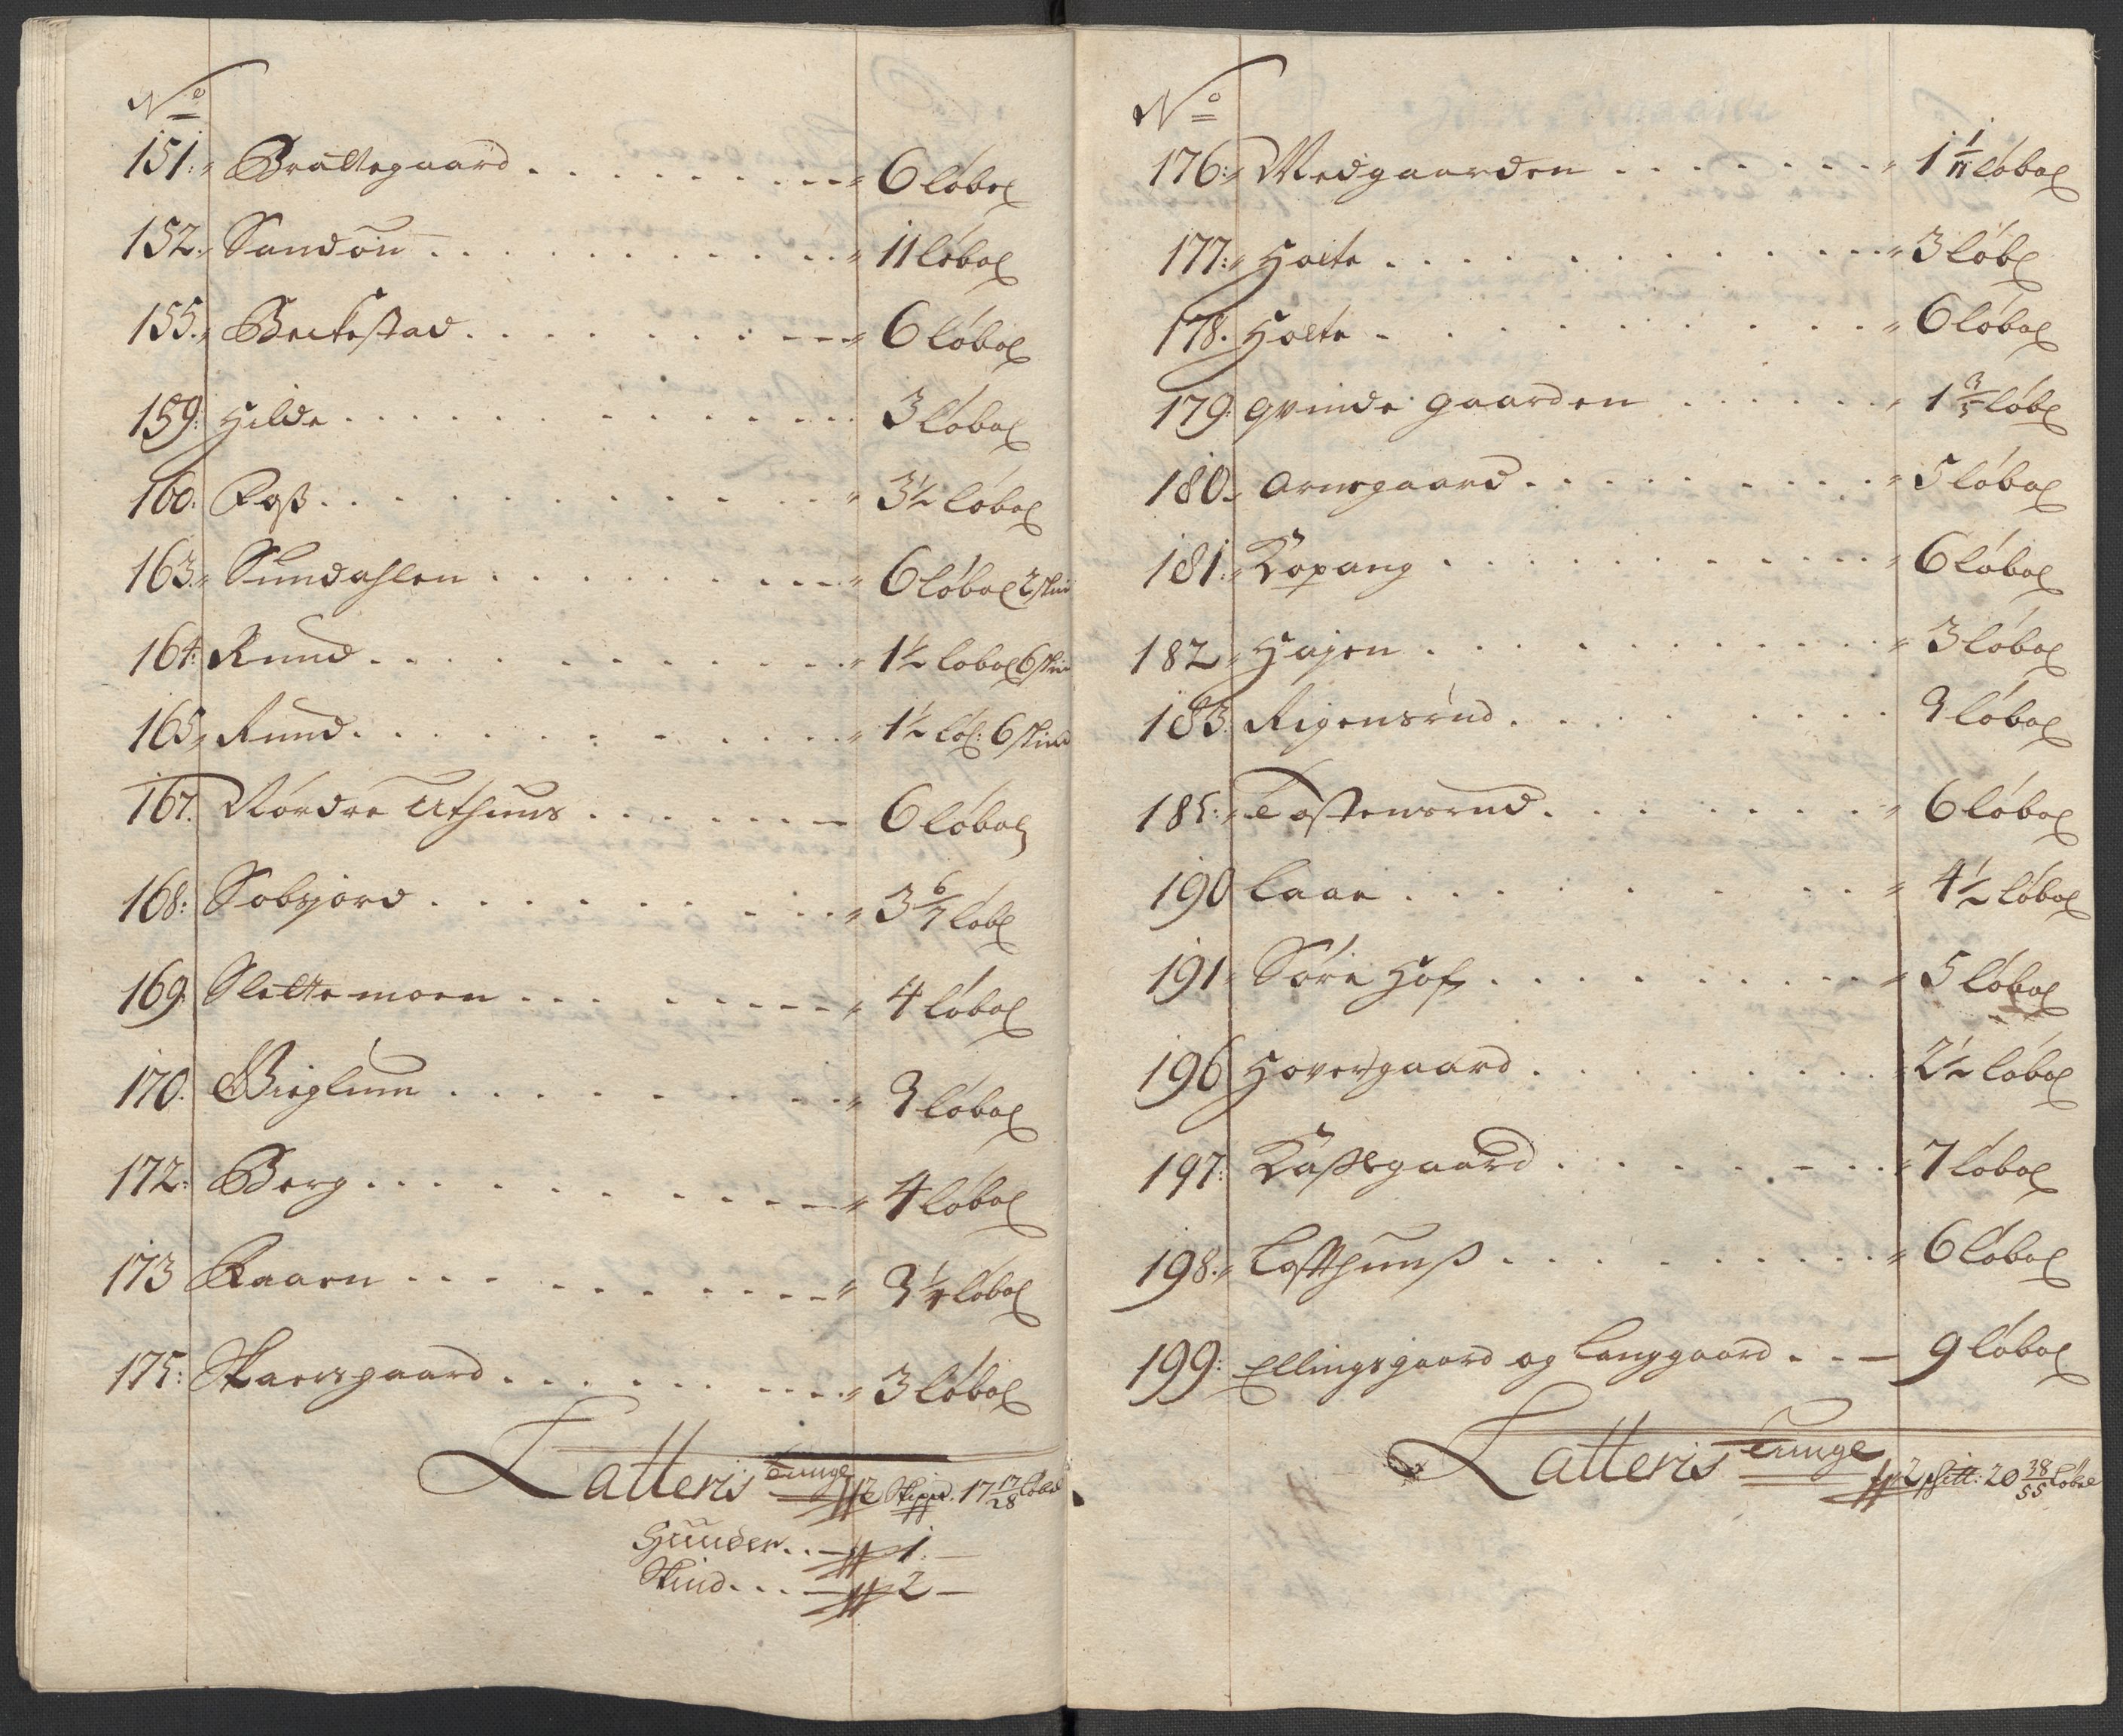 No
151. Brattegaard . . . . . . . . . 6 løbol
152. Sandøn . . . . . . . . . 11 løbol
155. Beckestad . . . . . . . . . 6 løbol
159. Hilde . . . . . . . . . 3 løbol
160. Foss . . . . . . . . . 3½ løbol
163. Sundahlen . . . . . . . . . 6 løbol 2 skin
164. Ruud . . . . . . . . . 1½ løbol 6 skin
165. Ruud . . . . . . . . . 1½ løb: 6 skind
167. Nordre Uthuus . . . . . . . . . 6 løbol
168: Solsjord . . . . . . . . . 3 6/7 løbl
169. Slettemoen . . . . . . . . . 4 løbol
170. Wieglum . . . . . . . . . 3 løbol
172: Berg . . . . . . . . . 4 løbol
173 Raaen . . . . . . . . . 3 ¼ løbol
175: Skaersgaard . . . . . . . . . 3 løbol
Latteris Tunge # 2 Skippd. 17 17/28 løbol
Huuder . . — # 1. —
Skind . . . — # 2 —
No
176: Medgaarden . . . . . . . . . 1 1/11 løbol
177: Holte . . . . . . . . . 3 løbl
178. Holte . . . . . . . . . 6 løbol
179. Qvinde gaarden . . . . . . . . . 1 3/5 løbl
180. Arnegaard . . . . . . . . . 5 løbol
181. Kopang . . . . . . . . . 6 løbol
182 Hajen . . . . . . . . . 3 løbol
183. Rigensrud . . . . . . . . . 3 løbol
185: Tostensrud . . . . . . . . . 6 løbol
190 Laae . . . . . . . . . 4½ løbol
191 Søre Hof . . . . . . . . . 5 løbol
196 Hoversgaard . . . . . . . . . 2½ løbol
197: Kaasegaard . . . . . . . . . 7 løbol
198. Loftthuus . . . . . . . . . 6 løbol
199: Ellingsgaard og Langgaard . . — 9 løbol
Latteris Tunge # 2 shit: 20 38/55 løbol